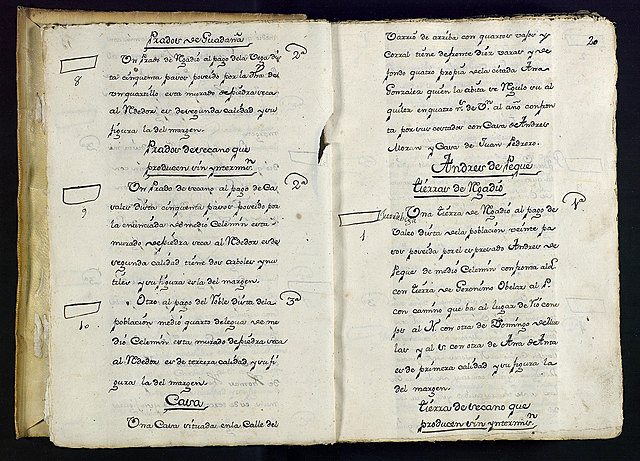 Prados de Guadaña
8
2ª
Un Prado de Rgadio al pago dela Vega dis
ta cinquenta pasos poseido por la dha. de
un quartillo esta murado de piedra seca
al Rdedor es de segunda calidad y su
figura la del margen.
Prados de secano que
producen sin yntermisn
9
2ª
Un Prado de secano al pago de Ca
vales dista cinquenta pasos poseido por
la enunciada de medio Celemin esta
murado de piedra seca al Rdedor es de
segunda calidad tiene dos arboles ynu
tiles y su figura es la del margen.
10
3ª
Otro al pago del Roble dista dela
población medio quarto delegua de me
dio Celemin esta murado de piedra seca
al Rdedor es de tercera calidad, y su fi
gura la del margen.
Casa
Una Casa situada enla Calle del
20
Varrio de arriba con quartos vajos y
Corral tiene de frente diez varas y de
fondo quatro propia dela citada Ana
Gonzalez quien la abita se Rgulo su al
quiler en quatro rs. de Vn. al año confron
ta por sus costados con Casa de Andres
Moran y Casa de Juan Pedrero.
Andres de Peque
tierras de Rgadio
1
1ª
Una tierra de Rgadio al pago de
Valeo dista dela poblacion veinte pa
sos poseida por el expresado Andres de
Peque de medio Celemin confronta al L.
con tierra de Geronimo Obelar al P.
con camino que ba al lugar de Rio cone
jos al N. con otra de Domingo de
las y al S. con otra de Ana de Anta
es de primera calidad y su figura la
del margen.
tierra de secano que
producen sin yntermisn